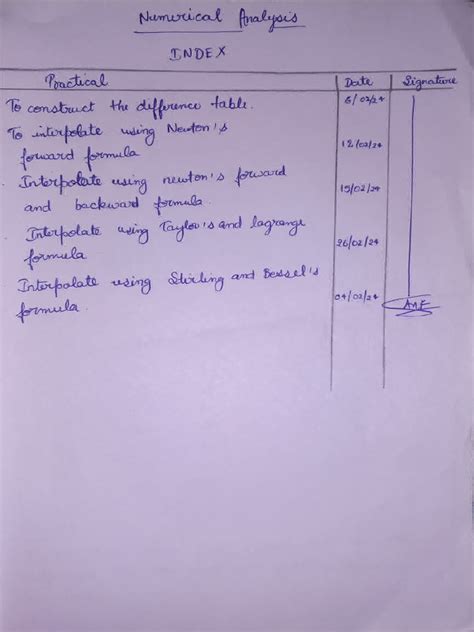 Numerical Analysis
INDEX
Practical Date Signature
To construct the difference table. 6/02/24
To interpolate using Newton's
forward formula 12/02/24
Interpolate using newton's forward
and backward formula. 19/02/24
Interpolate using Taylor's and lagrange
formula 26/02/24
Interpolate using Stirling and Bessel's
formula. 04/02/24